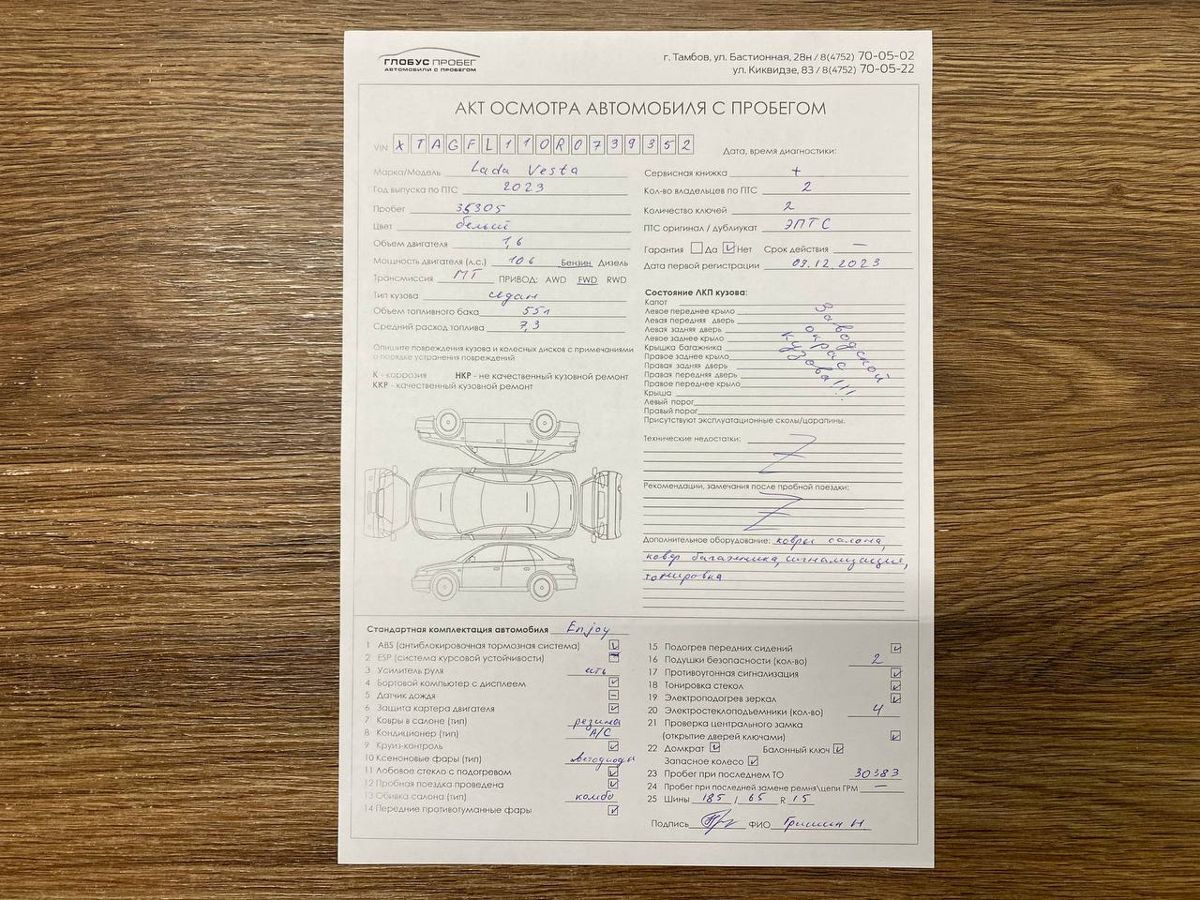 ГЛОБУС ПРОБЕГ
АВТОМОБИЛИ С ПРОБЕГОМ
г. Тамбов, ул. Бастионная, 28н / 8(4752) 70-05-02
ул. Киквидзе, 83 / 8(4752) 70-05-22
АКТ ОСМОТРА АВТОМОБИЛЯ С ПРОБЕГОМ
VIN XTAGFL110R0739352
Дата, время диагностики:
Марка/Модель Lada Vesta
Год выпуска по ПТС 2023
Пробег 35305
Цвет белый
Объем двигателя 1,6
Мощность двигателя (л.с.) 106 Бензин Дизель
Трансмиссия МТ ПРИВОД: AWD FWD RWD
Тип кузова седан
Объем топливного бака 55л
Средний расход топлива 7,3
Опишите повреждения кузова и колесных дисков с примечаниями
о порядке устранения повреждений
К - коррозия НКР - не качественный кузовной ремонт
ККР - качественный кузовной ремонт
Сервисная книжка +
Кол-во владельцев по ПТС 2
Количество ключей 2
ПТС оригинал / дубликат ЭПТС
Гарантия Да Нет Срок действия —
Дата первой регистрации 09.12.2023
Состояние ЛКП кузова:
Капот
Левое переднее крыло
Левая передняя дверь
Левая задняя дверь
Левое заднее крыло
Крышка багажника
Правое заднее крыло
Правая задняя дверь
Правая передняя дверь
Правое переднее крыло
Крыша
Левый порог
Правый порог
Заводской
окрас
кузова!!!
Присутствуют эксплуатационные сколы/царапины.
Технические недостатки:
Рекомендации, замечания после пробной поездки:
Дополнительное оборудование: ковры салона,
ковер багажника, сигнализация,
тонировка
Стандартная комплектация автомобиля Enjoy
1 ABS (антиблокировочная тормозная система)
2 ESP (система курсовой устойчивости)
3 Усилитель руля есть
4 Бортовой компьютер с дисплеем
5 Датчик дождя
6 Защита картера двигателя
7 Ковры в салоне (тип) резина
8 Кондиционер (тип) A/C
9 Круиз-контроль
10 Ксеноновые фары (тип) светодиоды
11 Лобовое стекло с подогревом
12 Пробная поездка проведена
13 Обивка салона (тип) комбо
14 Передние противотуманные фары
15 Подогрев передних сидений
16 Подушки безопасности (кол-во) 2
17 Противоугонная сигнализация
18 Тонировка стекол
19 Электроподогрев зеркал
20 Электростеклоподъемники (кол-во) 4
21 Проверка центрального замка
(открытие дверей ключами)
22 Домкрат Балонный ключ
Запасное колесо
23 Пробег при последнем ТО 30383
24 Пробег при последней замене ремня\цепи ГРМ —
25 Шины 185 / 65 R 15
Подпись ФИО Гришин Н